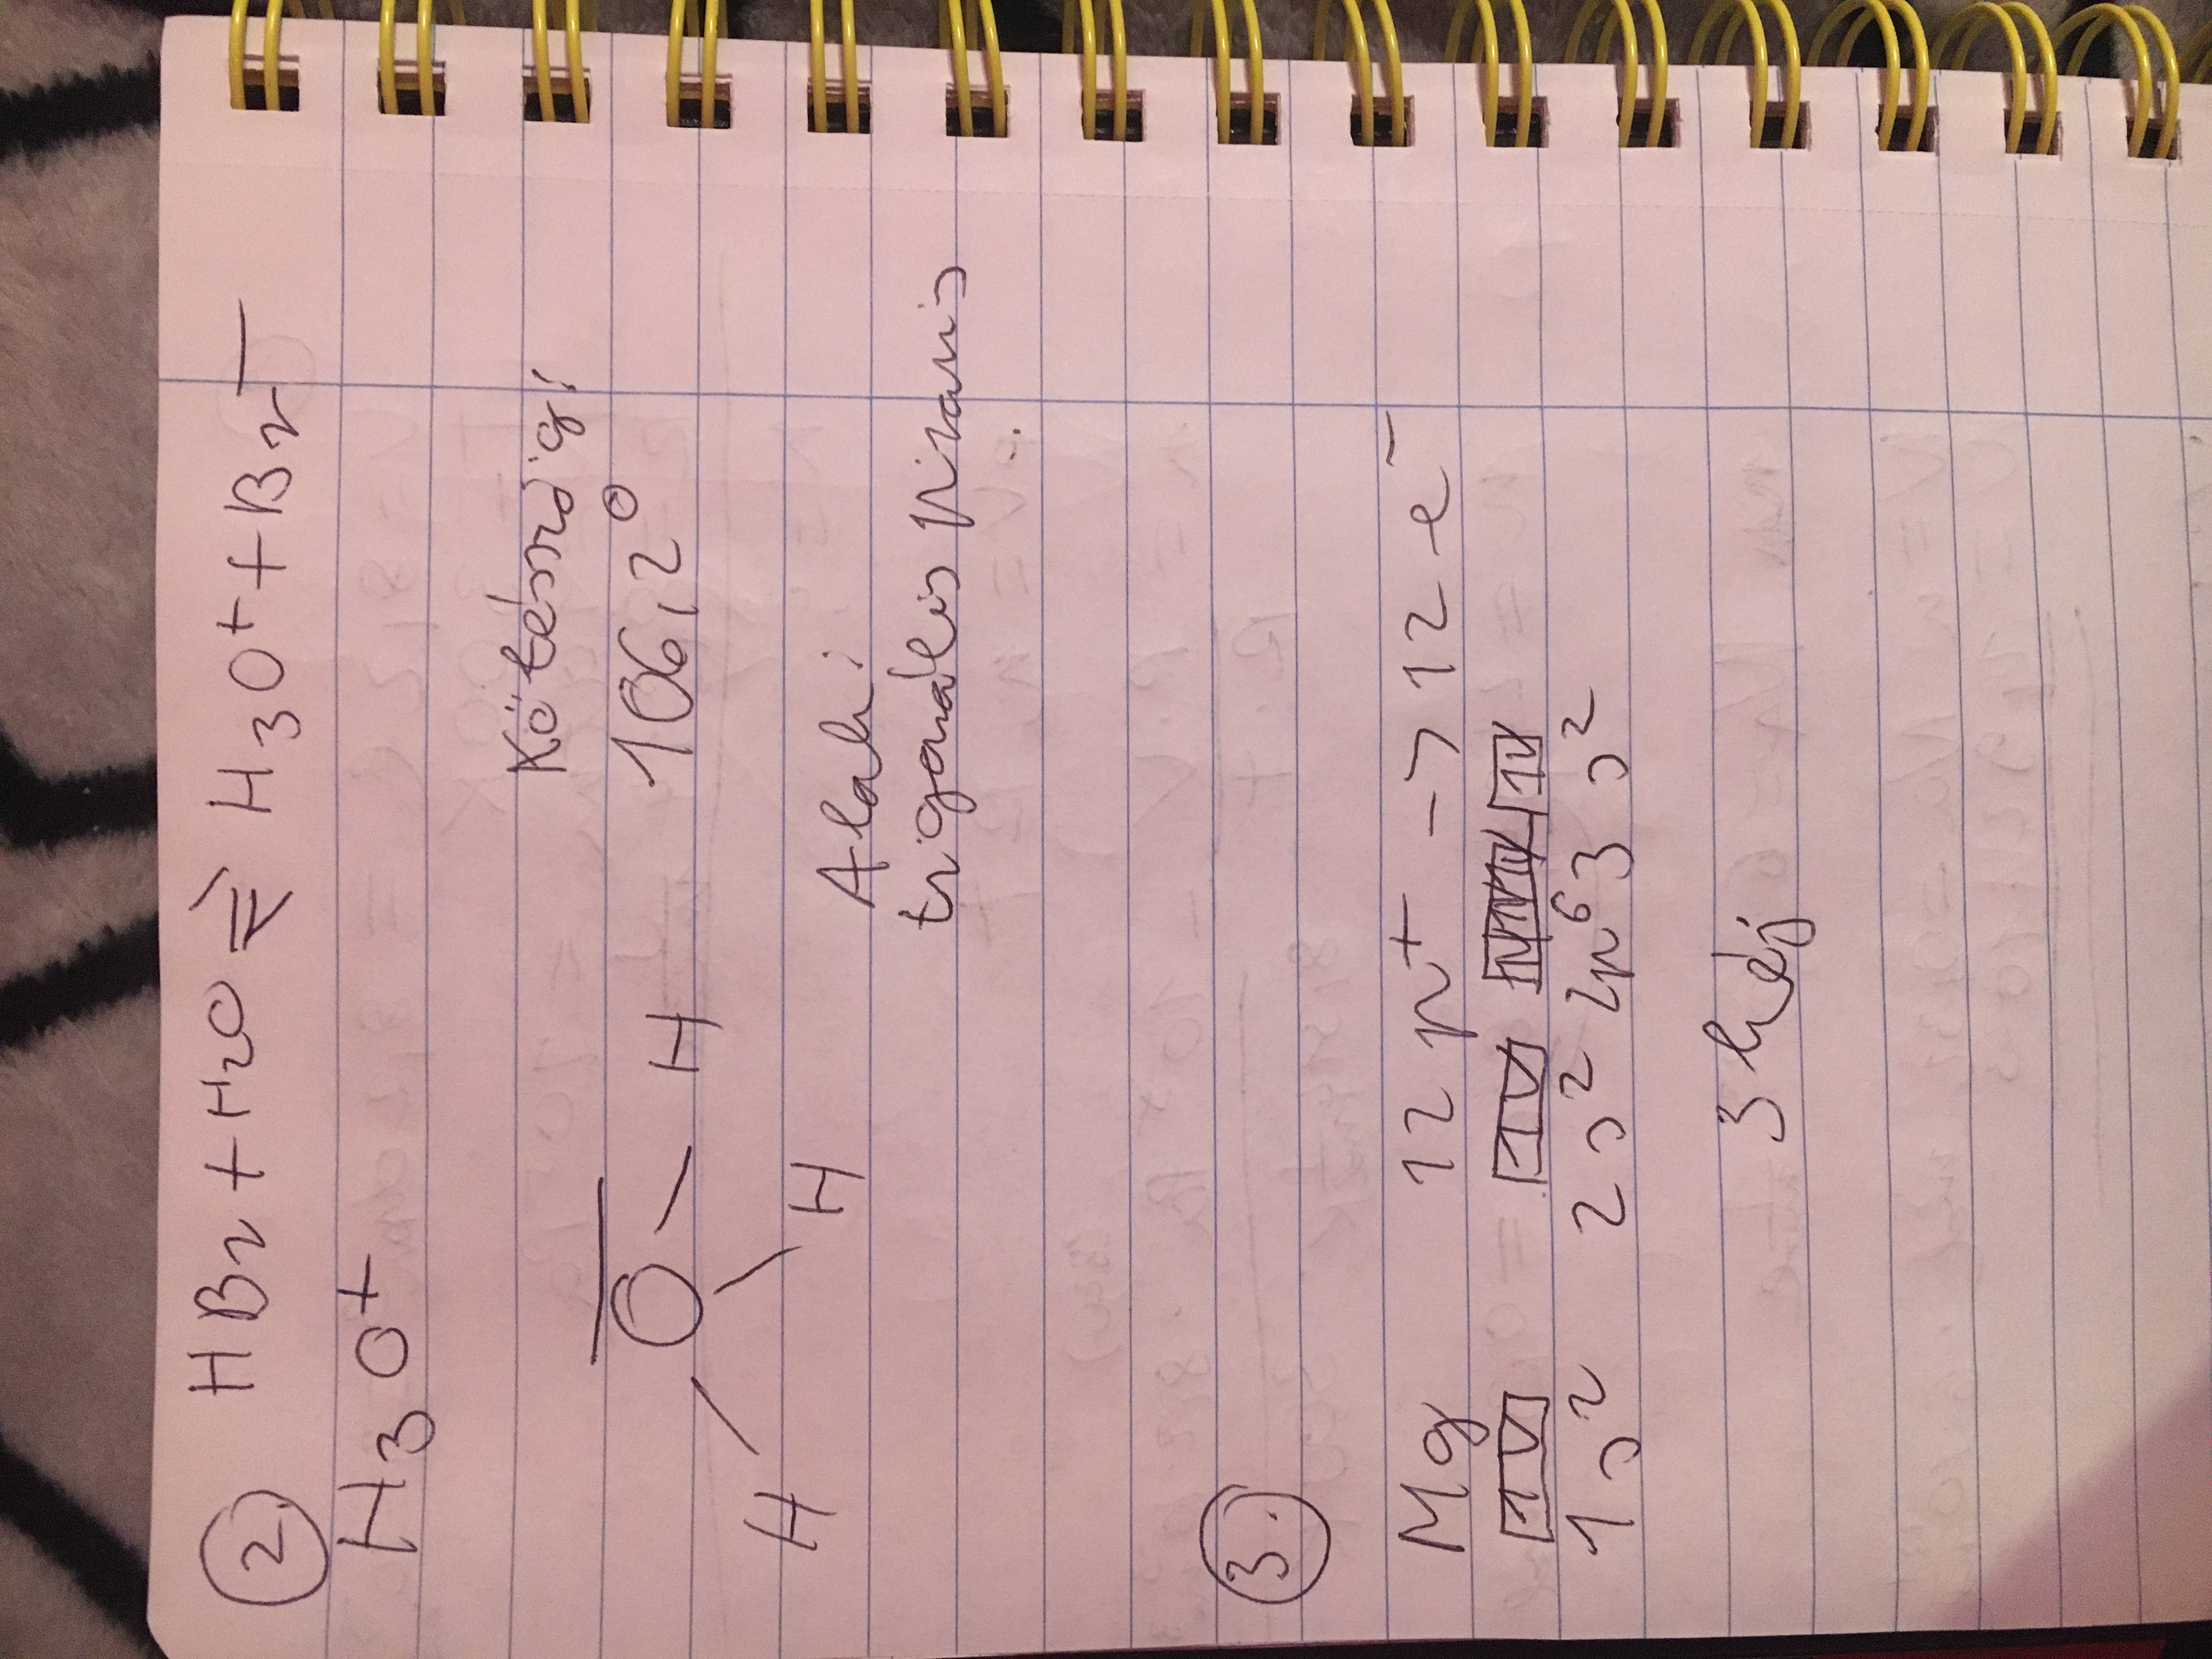 2. HBr + H2O ⇌ H3O+ + Br-
H3O+
Kötésszög:
106,2°
O - H
H H
Alak:
trigonális piramis
3.
Mg 12 p+ -> 12 e-
1s2 2s2 2p6 3s2
3 héj